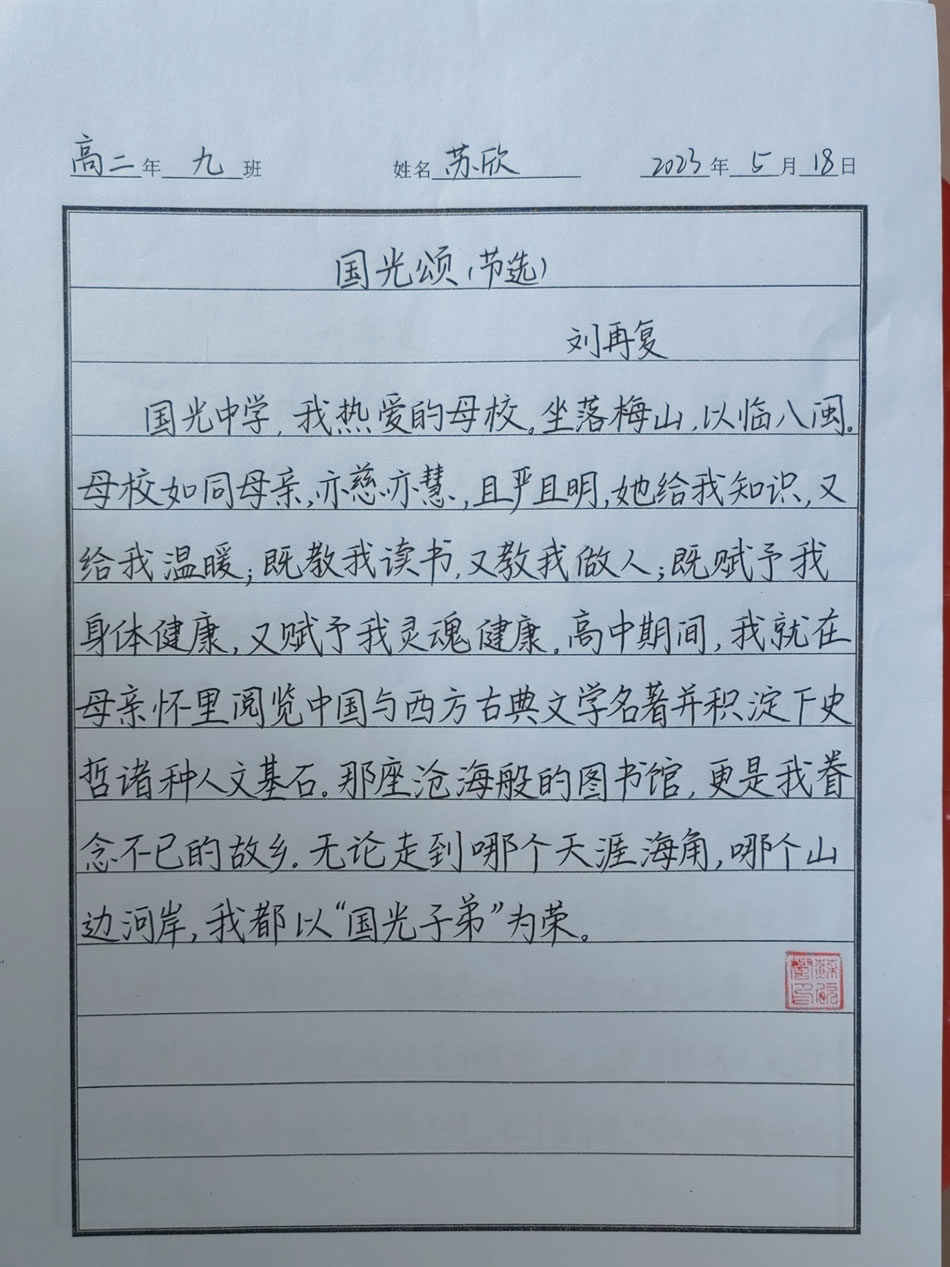 高二年 九 班 姓名 苏欣 2023年 5 月 18 日
国光颂(节选)
刘再复
国光中学,我热爱的母校。坐落梅山,以临八闽。
母校如同母亲,亦慈亦慧,且严且明,她给我知识,又
给我温暖;既教我读书,又教我做人;既赋予我
身体健康,又赋予我灵魂健康。高中期间,我就在
母亲怀里阅览中国与西方古典文学名著并积淀下史
哲诸种人文基石。那座沧海般的图书馆,更是我眷
念不已的故乡。无论走到哪个天涯海角,哪个山
边河岸,我都以“国光子弟”为荣。